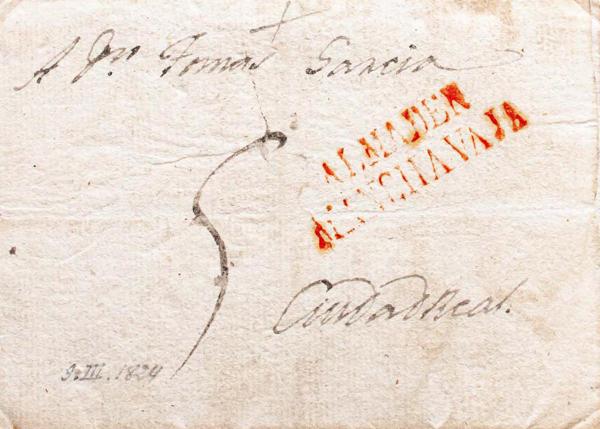 A Dn. Tomas Garcia
ALMADEN
MANCHAVAJA
5
Ciudad Real.
9.III.1824